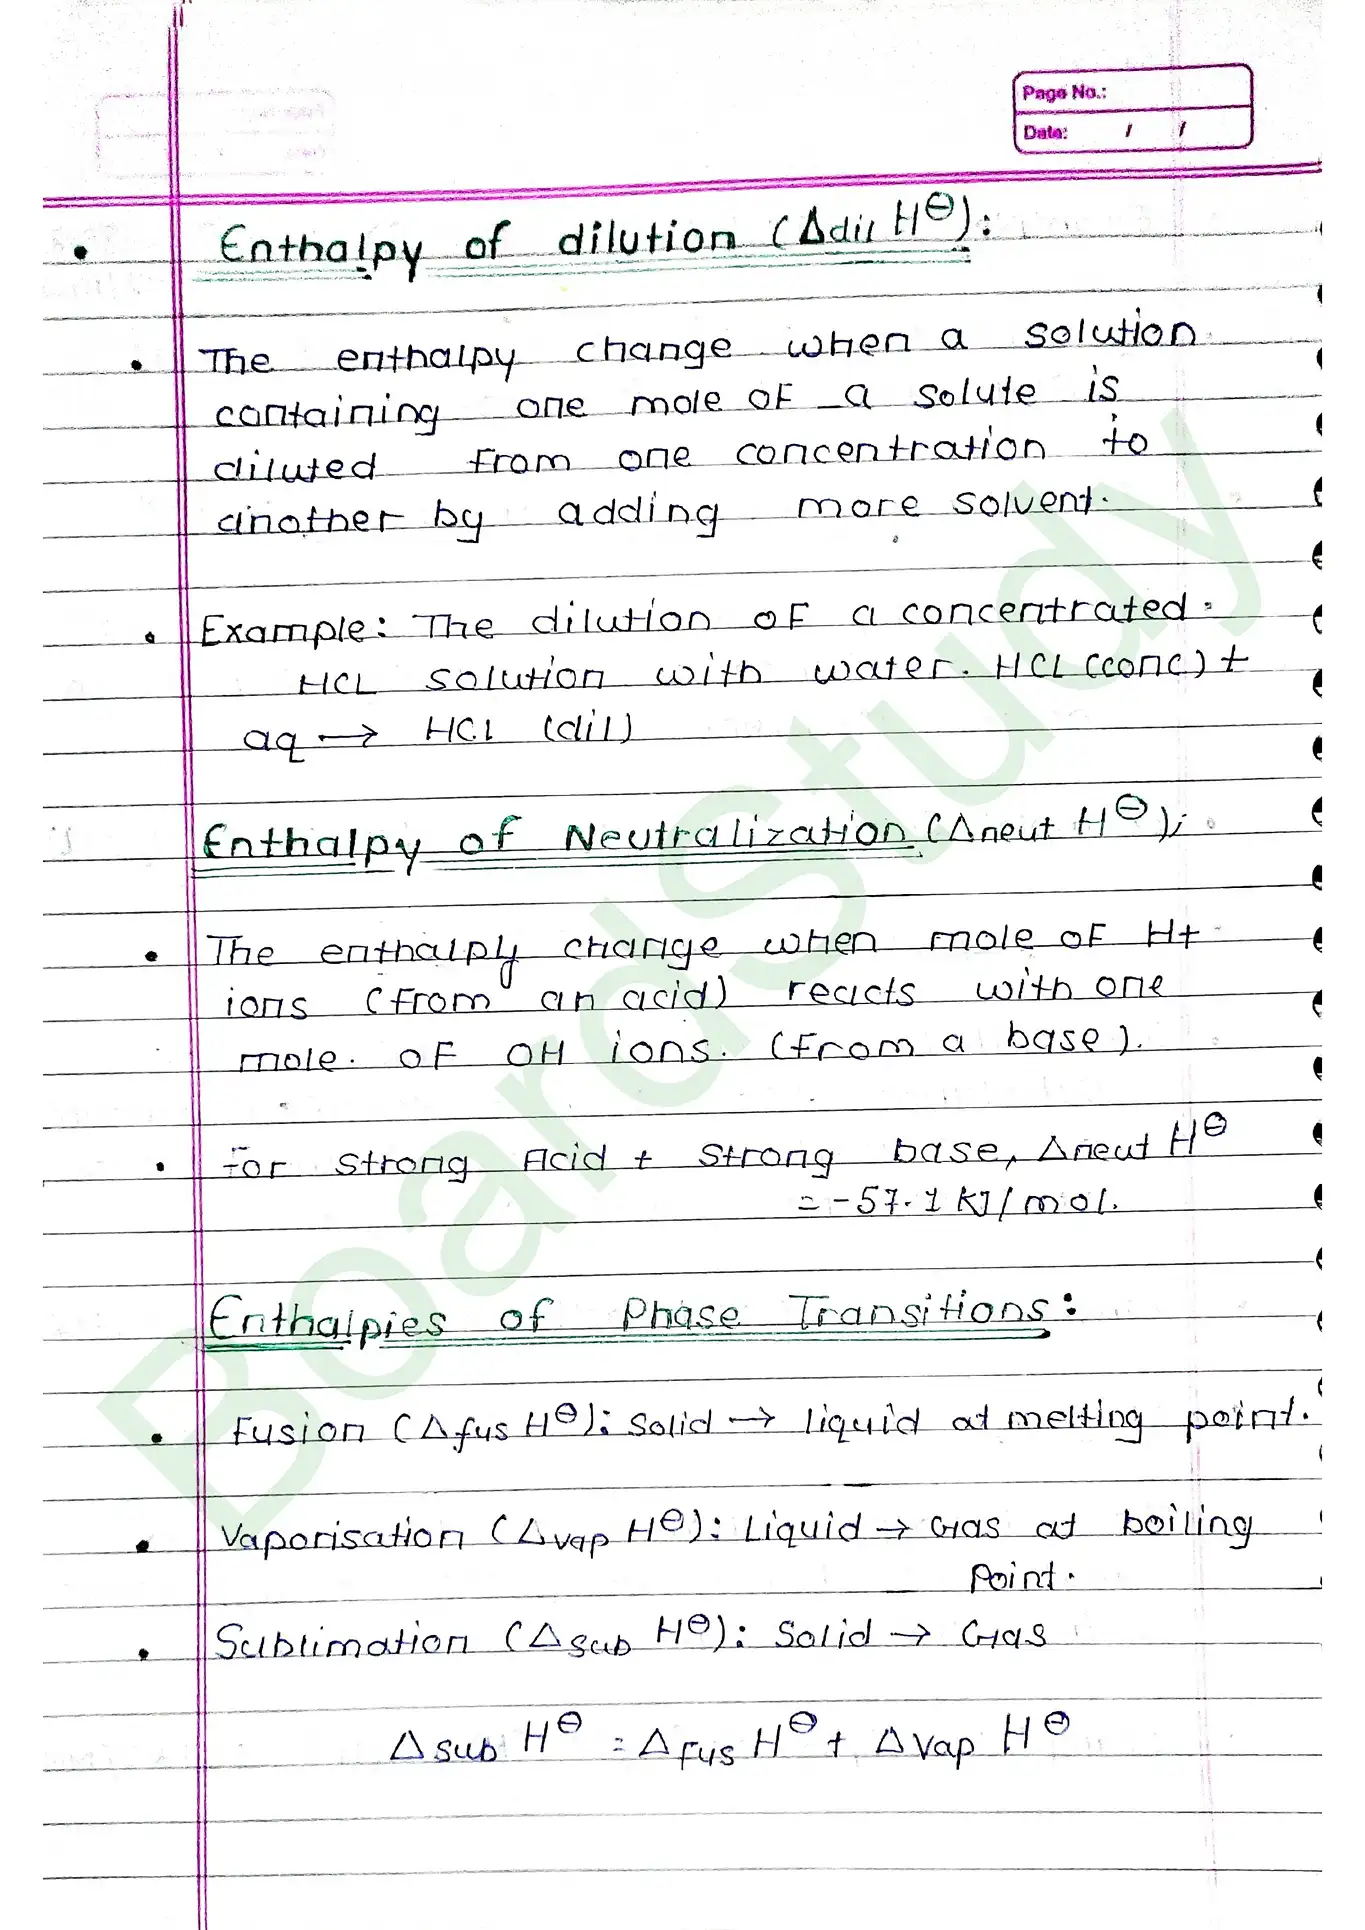 Page No.:
Date: / /
• Enthalpy of dilution (Δdil H⊖):
• The enthalpy change when a solution
containing one mole of a solute is
diluted from one concentration to
another by adding more solvent.
• Example: The dilution of a concentrated
HCL solution with water. HCL (conc) +
aq → HCl (dil)
Enthalpy of Neutralization (Δneut H⊖);
• The enthalpy change when mole of H+
ions (from an acid) reacts with one
mole. of OH ions. (from a base).
• For strong Acid + strong base, Δneut H⊖
= -57.1 KJ/mol.
Enthalpies of Phase Transitions:
• Fusion (Δfus H⊖): Solid → liquid at melting point.
• Vaporisation (Δvap H⊖): Liquid → Gas at boiling
Point.
• Sublimation (Δsub H⊖): Solid → Gas
Δsub H⊖ = Δfus H⊖ + Δvap H⊖
BoardStudy